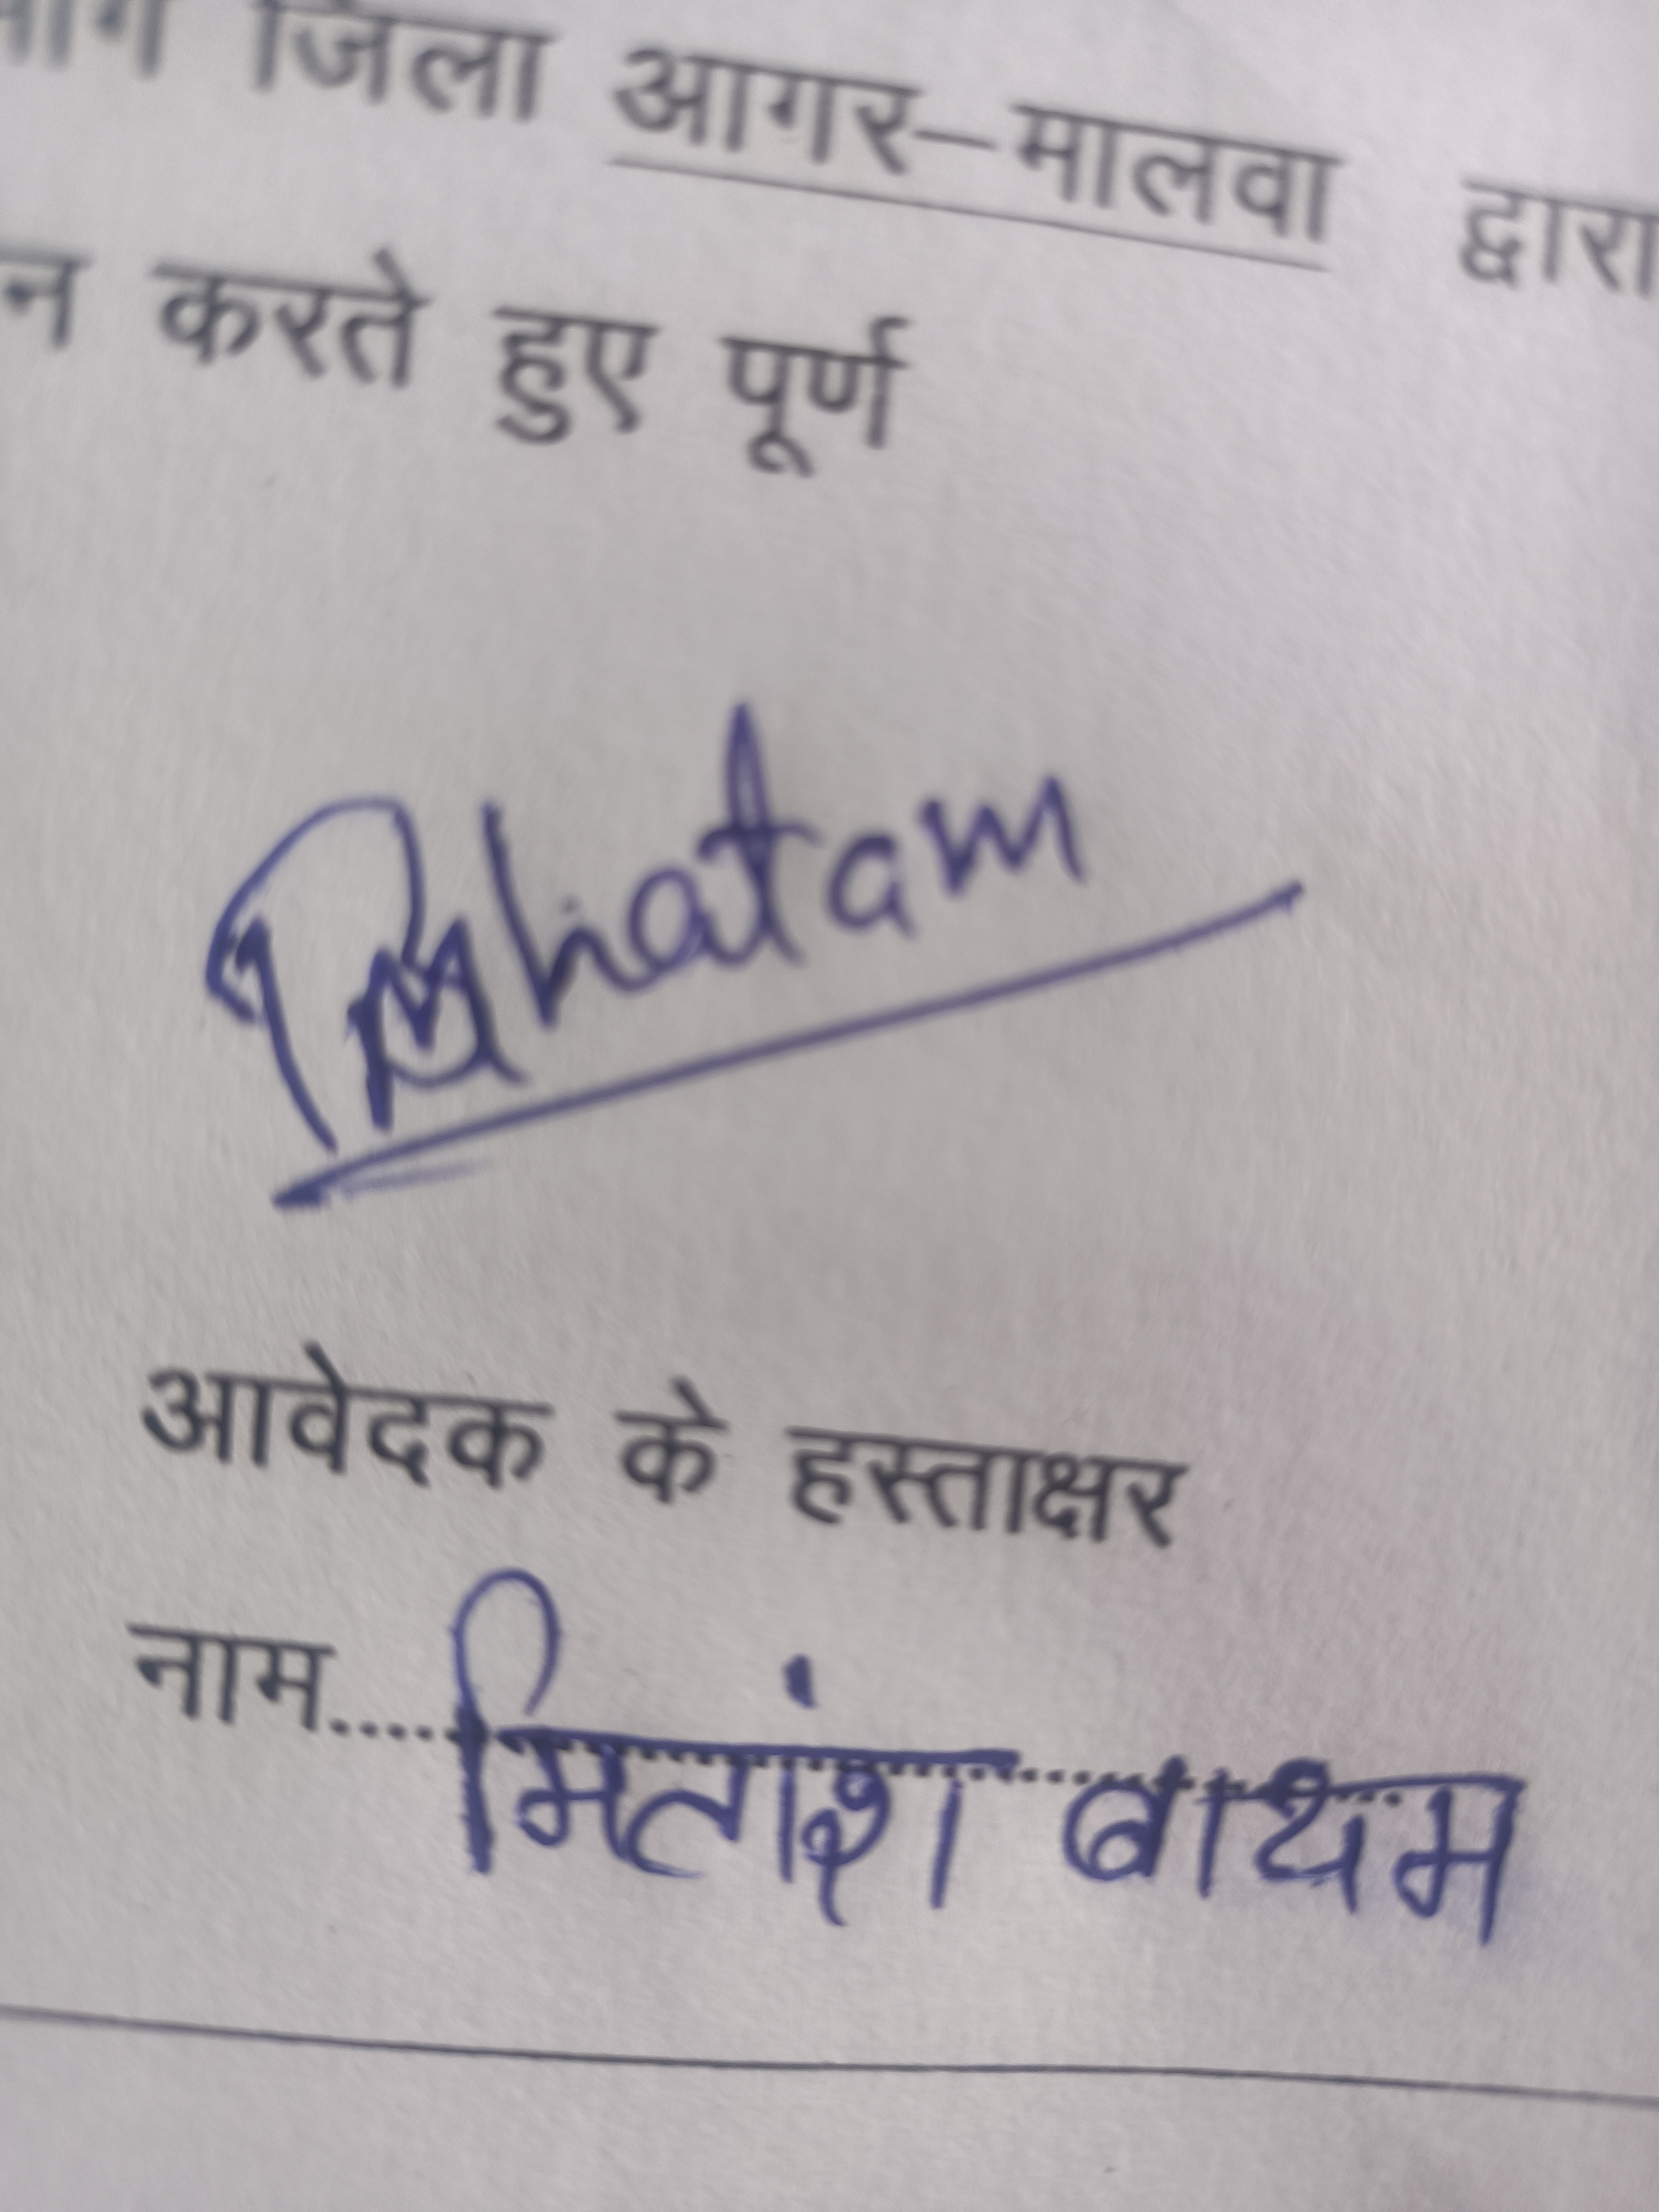 जिला आगर–मालवा द्वारा
न करते हुए पूर्ण
आवेदक के हस्ताक्षर
नाम..... मितांश बाथम